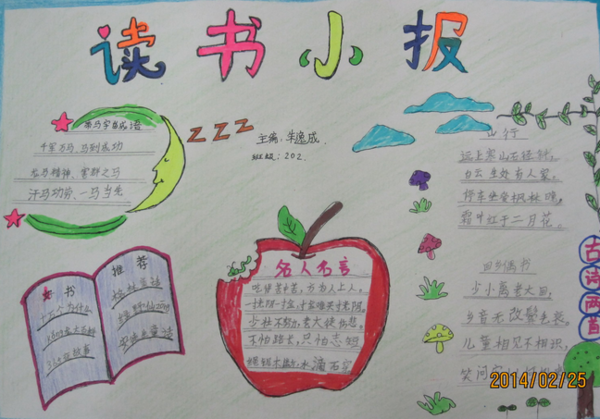 读书小报
带马字的成语
千军万马、马到成功
龙马精神、害群之马
汗马功劳、一马当先
主编:朱逸成
班级:202.
山行
远上寒山石径斜,
白云生处有人家,
停车坐爱枫林晚,
霜叶红于二月花。
古诗两首
回乡偶书
少小离家老大回,
乡音无改鬓毛衰,
儿童相见不相识,
笑问客
名人名言
吃得苦中苦,方为人上人。
一寸光阴一寸金,寸金难买寸光阴。
少壮不努力,老大徒伤悲。
不怕路长,只怕志短
水滴石穿
书
推荐
十万个为什么
格林童话
安徒生童话
故事
2014/02/25